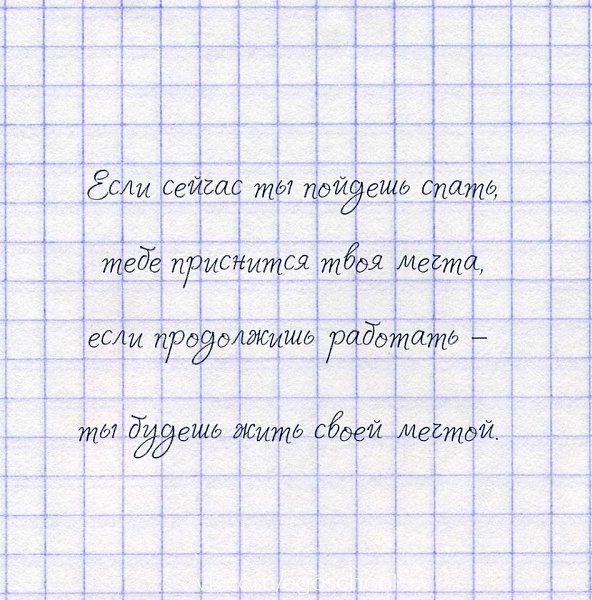 Если сейчас ты пойдешь спать,
тебе приснится твоя мечта,
если продолжишь работать –
ты будешь жить своей мечтой.